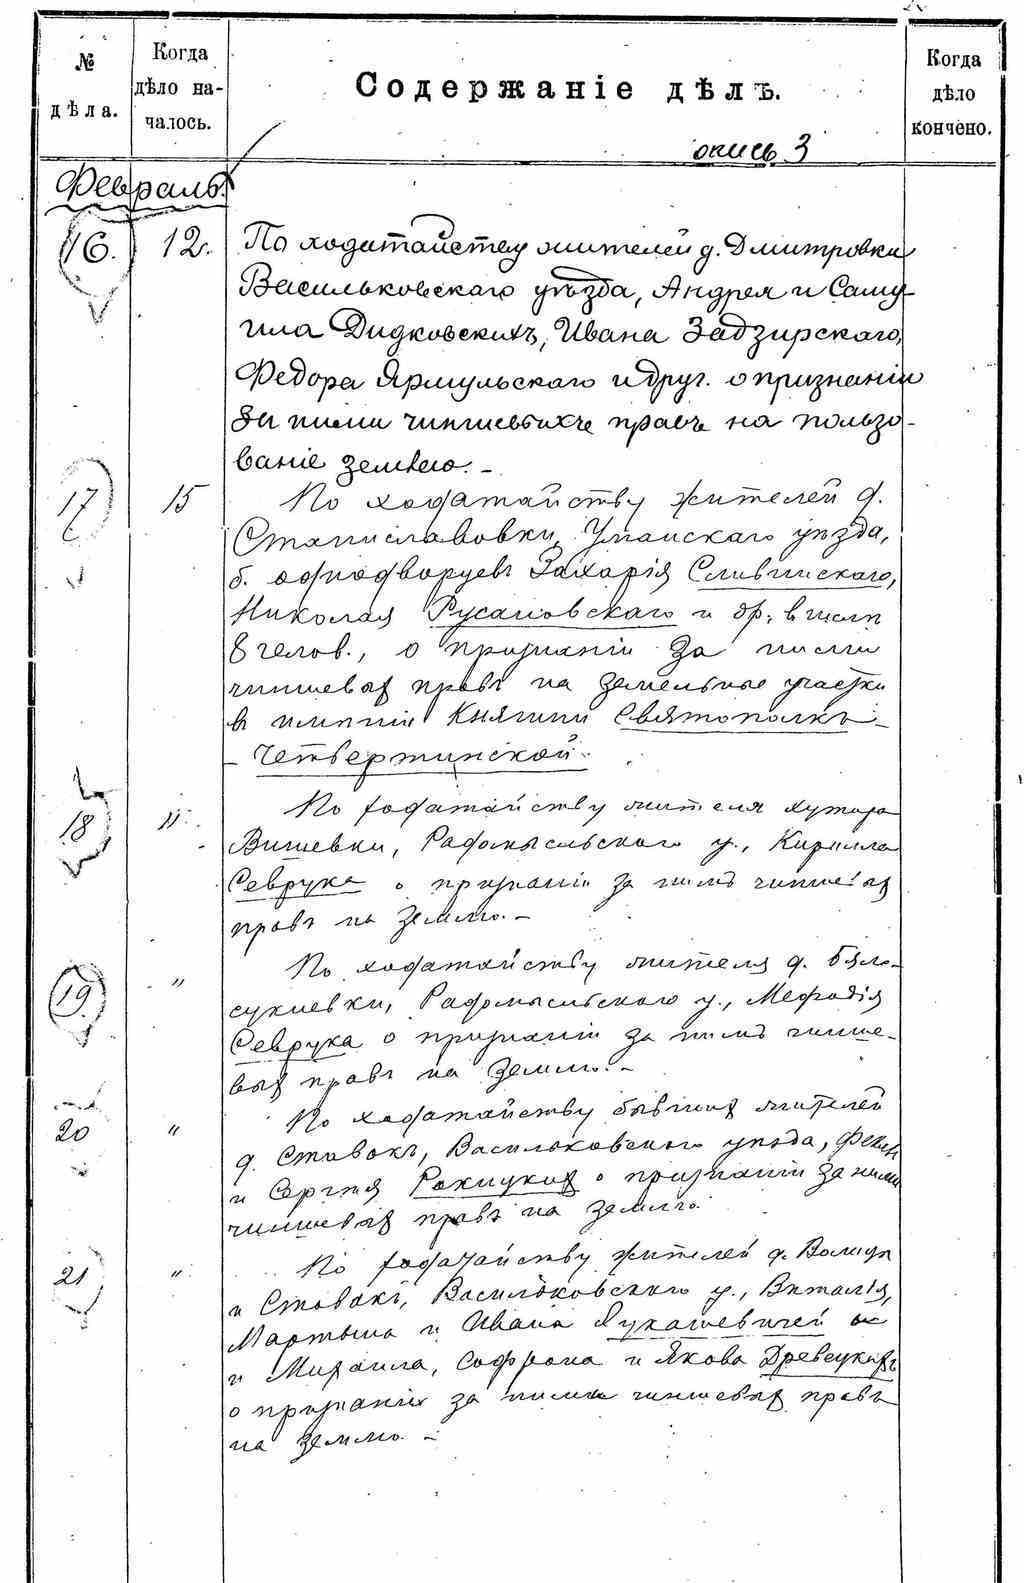 № дѣла.
Когда дѣло на-
чалось.
Содержаніе дѣлъ.
Когда дѣло кончено.
опись 3
Февраль.
16. 12. По ходатайству жителей д. Дмитровки
Васильковскаго уѣзда, Андрея и Саму-
ила Дидковскихъ, Ивана Задзирскаго,
Федора Ярмульскаго и друг. о признаніи
за ними чиншевыхъ правъ на пользо-
ваніе землею. –
17 15 По ходатайству жителей д.
Станиславовки, Уманскаго уѣзда,
б. однодворцевъ Захарія Сливинскаго,
Николая Русановскаго и др. в числѣ
8 челов., о признаніи за ними
чиншевых правъ на земельные участки
в имѣніи Княгини Святополкъ-
- Четвертинской.
18 " По ходатайству жителя хутора
Вишевки, Радомысльскаго у., Кирилла
Севрука о признаніи за нимъ чиншевых
правъ на землю. –
19 " По ходатайству жителя д.
Радомысльскаго у., Мефодія
Севрука о признаніи за нимъ чинше-
вых правъ на землю. –
20 " По ходатайству бывших жителей
д. Ставокъ, Васильковскаго уѣзда,
и Сергѣя Рокицких о признаніи за ними
чиншевых правъ на землю.
21 " По ходатайству жителей д.
и Ставокъ, Васильковскаго у., Виталія,
Мартына и Ивана Лукашевичей
и Михаила, Софрона и Якова Древецкихъ
о признаніи за ними чиншевых правъ
на землю. –